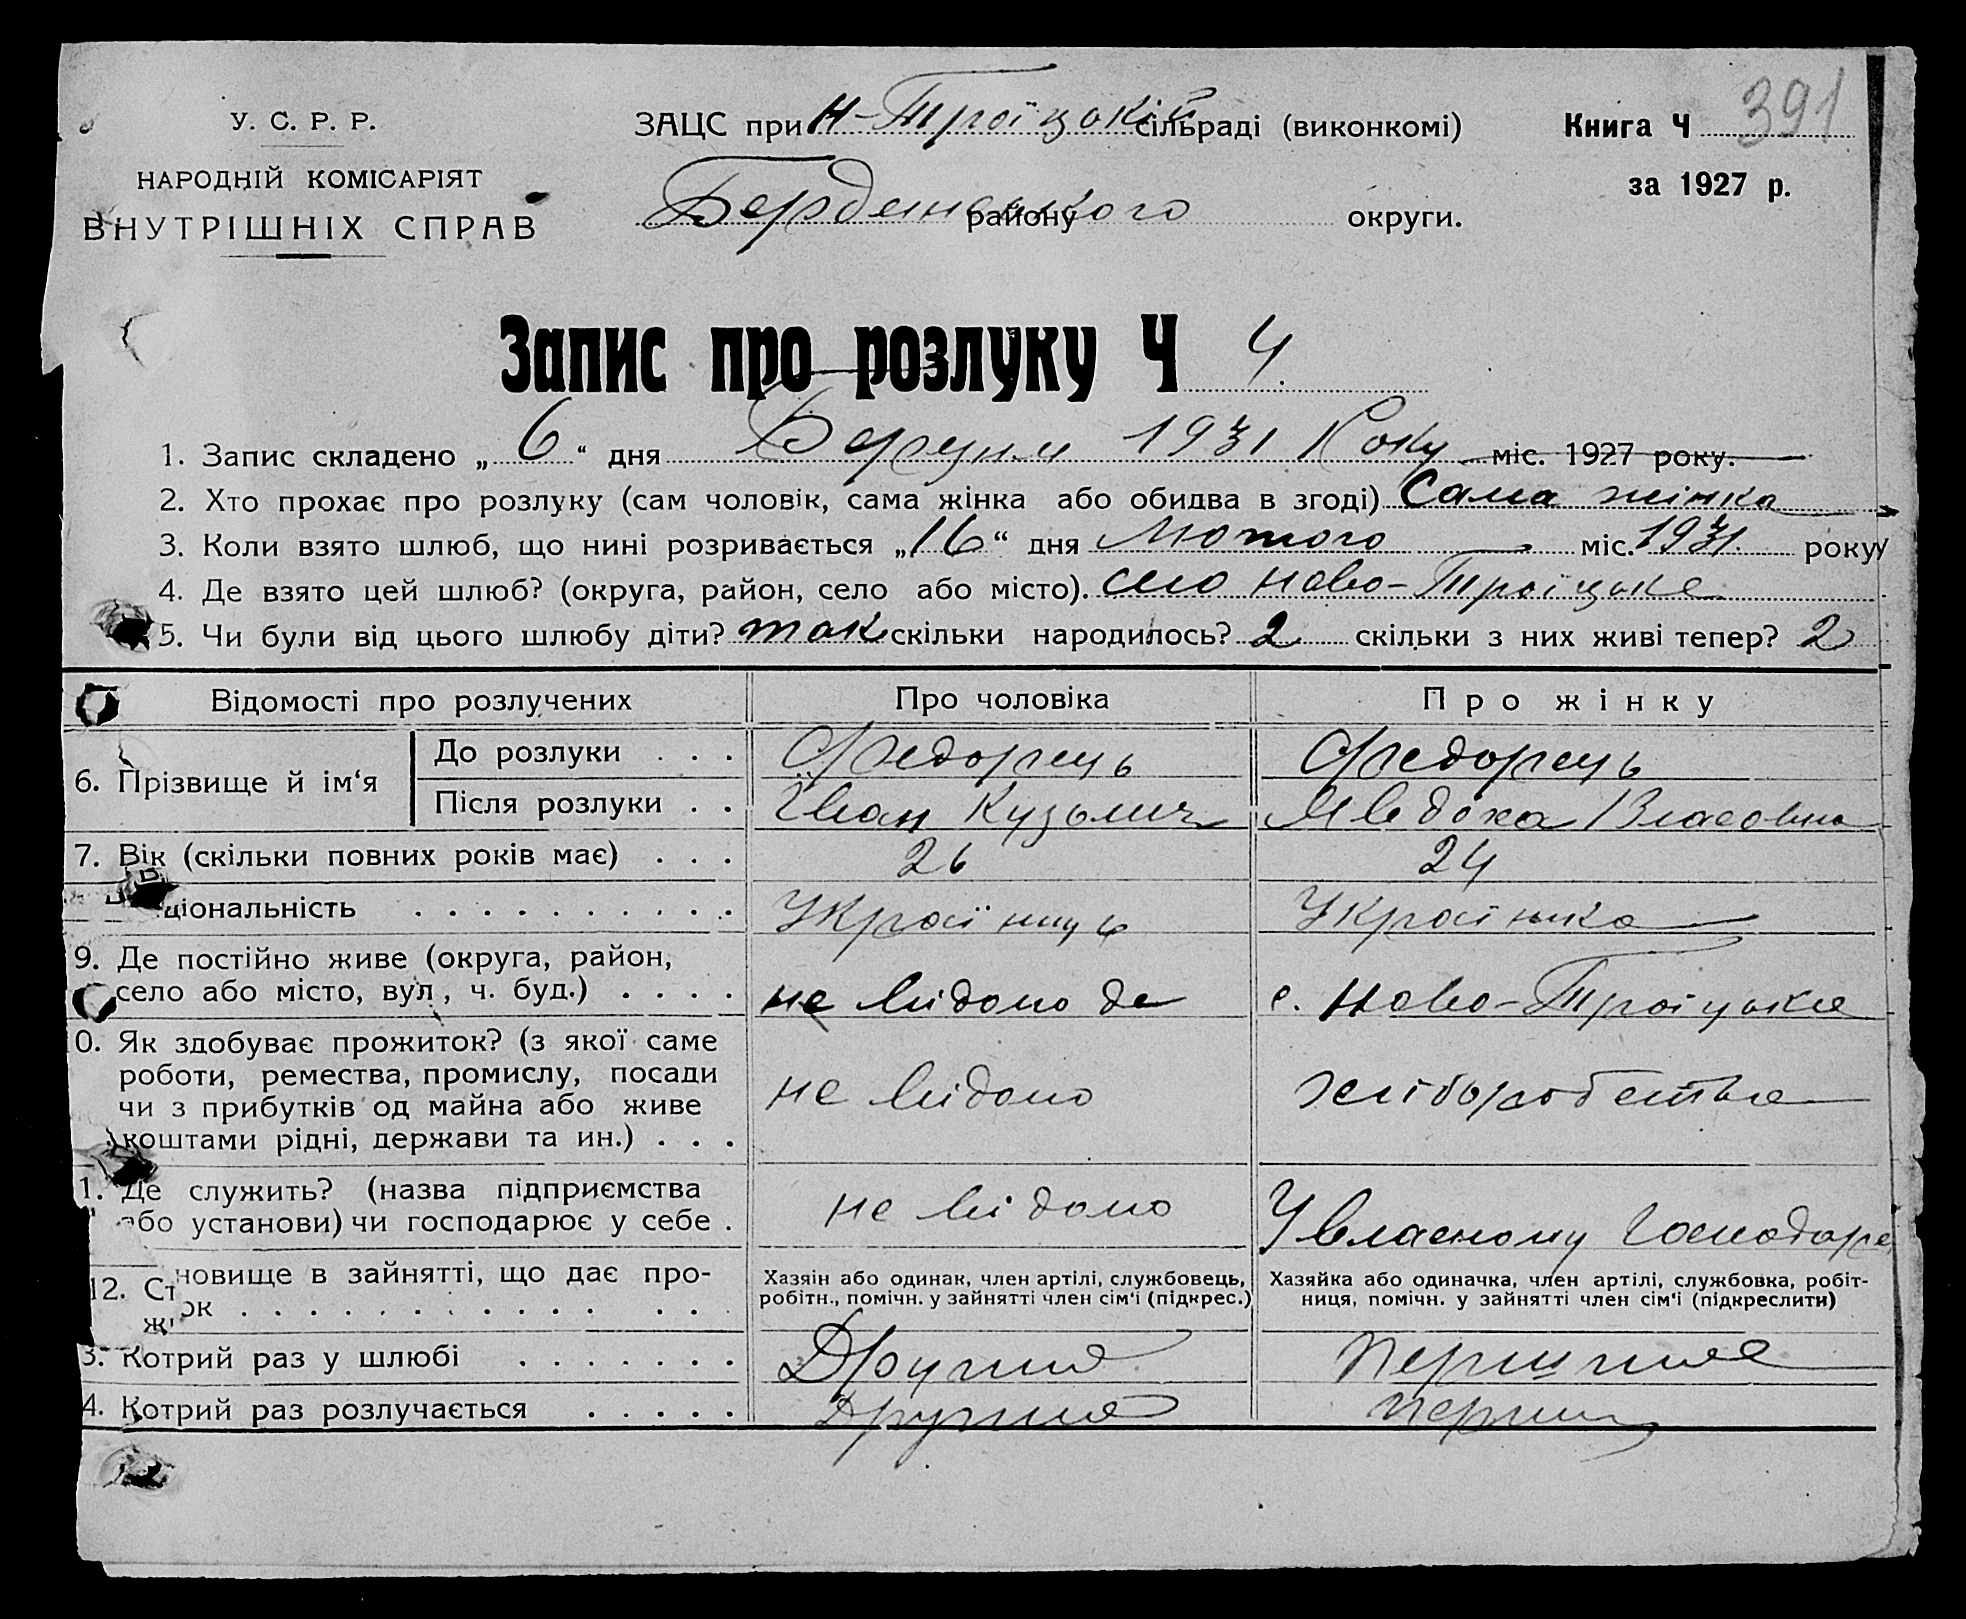 У. С. Р. Р.
НАРОДНІЙ КОМІСАРІЯТ
ВНУТРІШНІХ СПРАВ
ЗАЦС при Н-Троїцькій сільраді (виконкомі)
Бердянського району округи.
Книга Ч 391
за 1927 р.
Запис про розлуку Ч 4.
1. Запис складено „ 6 “ дня 1931 Року міс. 1927 року.
2. Хто прохає про розлуку (сам чоловік, сама жінка або обидва в згоді) Сама жінка
3. Коли взято шлюб, що нині розривається „ 16 “ дня Лютого міс. 1931. року
4. Де взято цей шлюб? (округа, район, село або місто). село Ново-Троїцьке
5. Чи були від цього шлюбу діти? так скільки народилось? 2 скільки з них живі тепер? 2
Відомості про розлучених Про чоловіка Про жінку
6. Прізвище й ім‘я
До розлуки . . . Федорець Федорець
Після розлуки . . Іван Кузьмич Явдоха Власовна
7. Вік (скільки повних років має) . . . 26 24
ціональність . . . . . . . . . . Українець Українка
9. Де постійно живе (округа, район,
село або місто, вул., ч. буд.) . . . . не відомо де с. Ново-Троїцьке
0. Як здобуває прожиток? (з якої саме
роботи, ремества, промислу, посади
чи з прибутків од майна або живе
коштами рідні, держави та ин.) . . . не відомо хліборобство
1. Де служить? (назва підприємства
або установи) чи господарює у себе . не відомо У власному Господаре
12. Становище в зайнятті, що дає про-
житок . . . . . . . . . . . .
Хазяїн або одинак, член артілі, службовець,
робітн., помічн. у зайнятті член сім‘ї (підкрес.)
Хазяйка або одиначка, член артілі, службовка, робіт-
ниця, помічн. у зайнятті член сім‘ї (підкреслити)
3. Котрий раз у шлюбі . . . . . . .
4. Котрий раз розлучається . . . . .